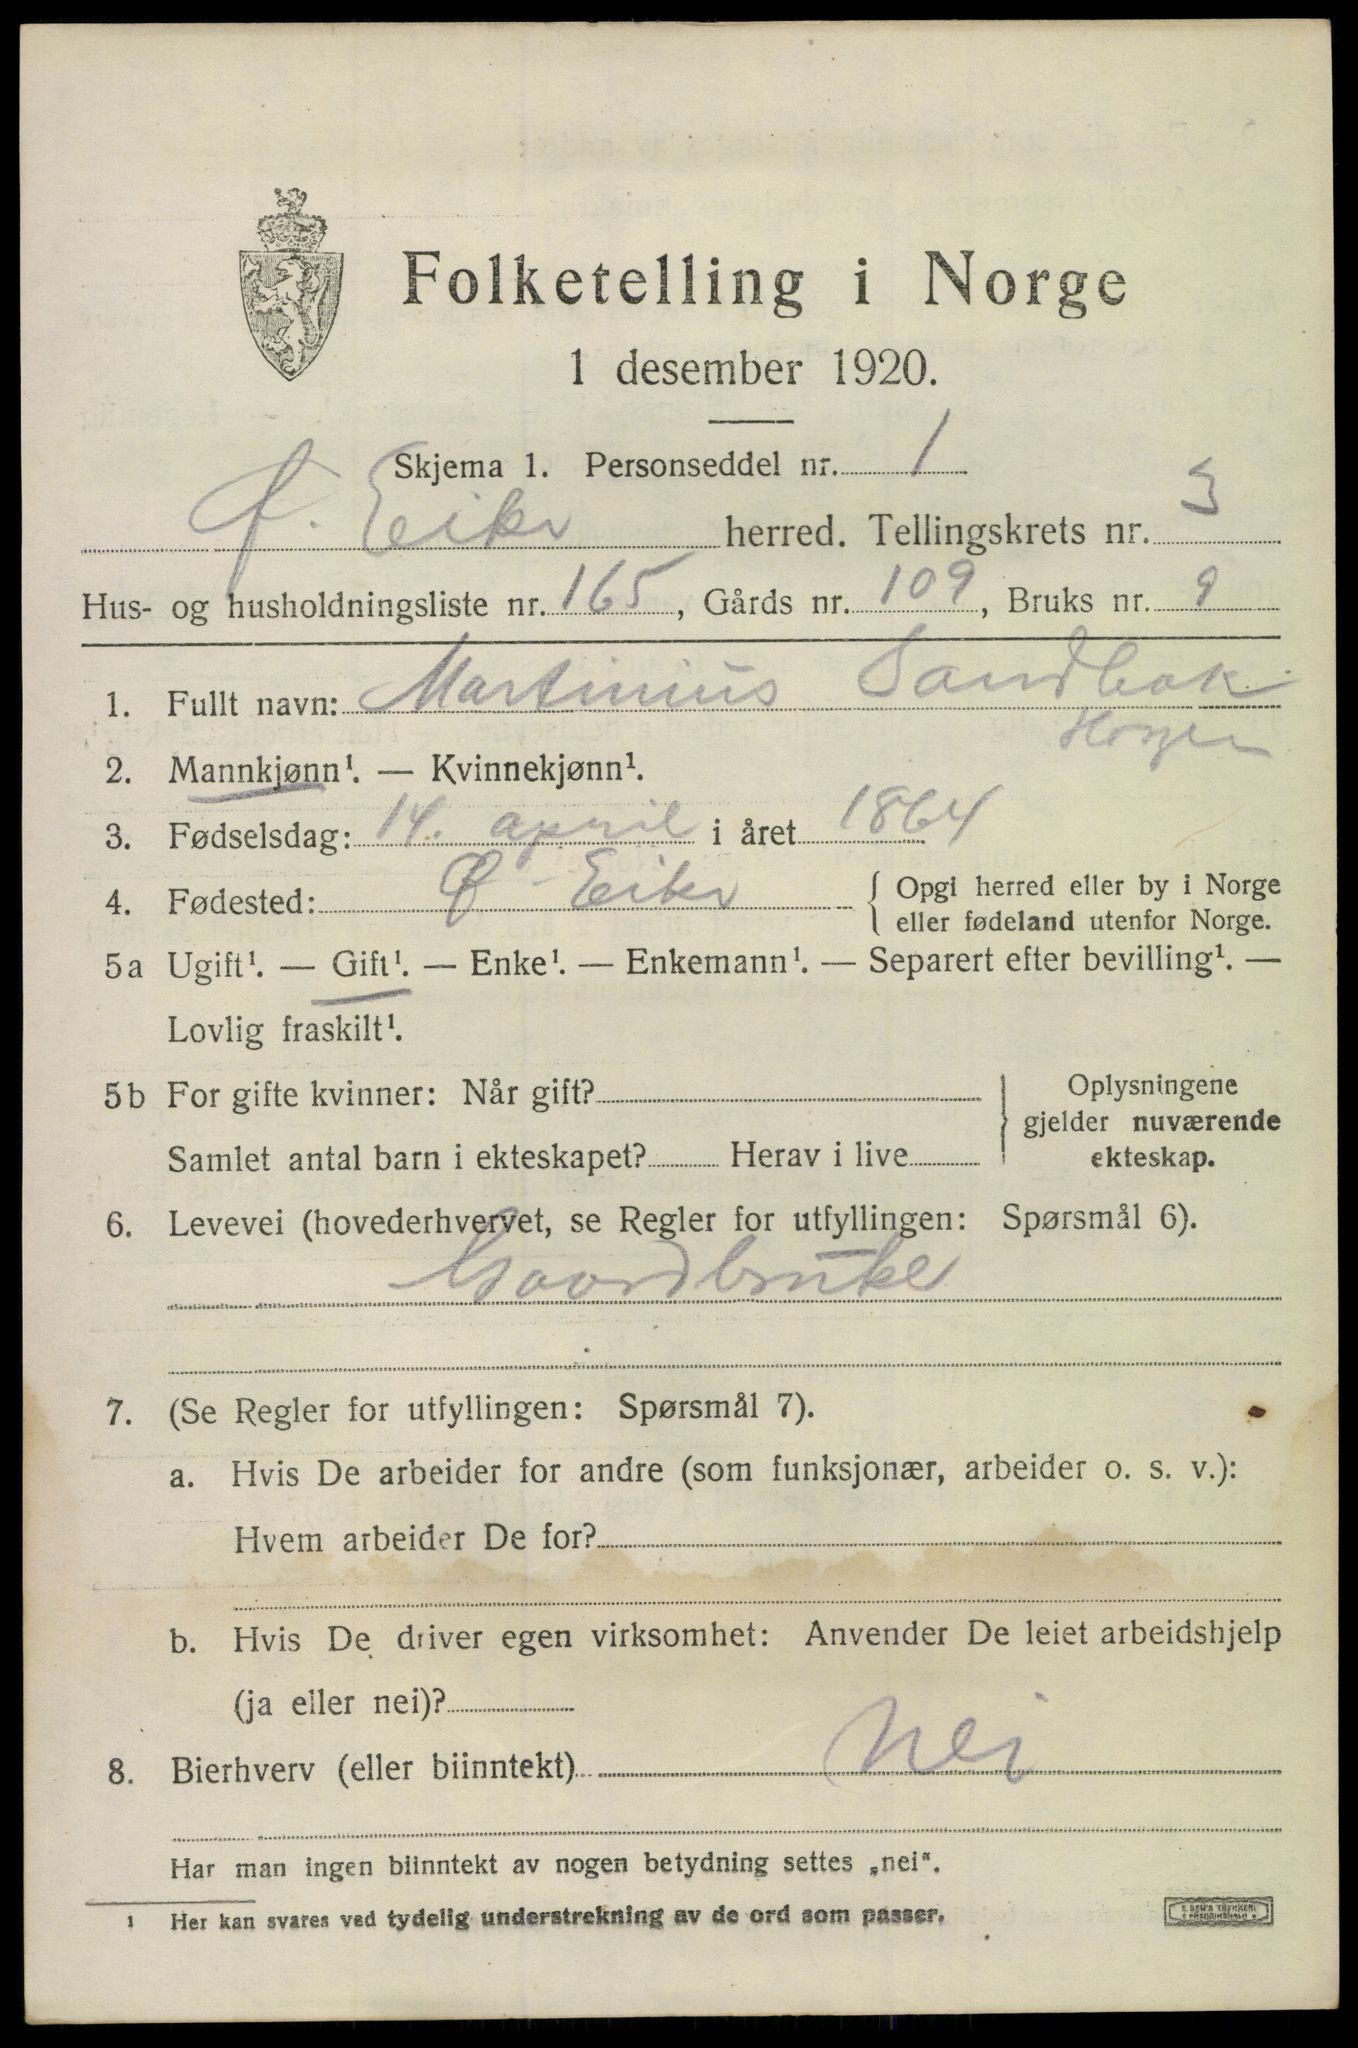 Folketelling i Norge
1 desember 1920.
Skjema 1. Personseddel nr. 1
Ø. Eiker herred. Tellingskrets nr. 3
Hus- og husholdningsliste nr. 165, Gårds nr. 109, Bruks nr. 9
1. Fullt navn: Martinius Sandbak
2. Mannkjønn¹. — Kvinnekjønn¹.
3. Fødselsdag: 14. april i året 1864
4. Fødested: Ø Eiker { Opgi herred eller by i Norge
eller fødeland utenfor Norge.
5a Ugift¹. — Gift¹. — Enke¹. — Enkemann¹. — Separert efter bevilling¹. —
Lovlig fraskilt¹.
5b For gifte kvinner: Når gift? } Oplysningene
gjelder nuværende
Samlet antal barn i ekteskapet? Herav i live ekteskap.
6. Levevei (hovederhvervet, se Regler for utfyllingen: Spørsmål 6).
Gaardbruke
7. (Se Regler for utfyllingen: Spørsmål 7).
a. Hvis De arbeider for andre (som funksjonær, arbeider o. s. v.):
Hvem arbeider De for?
b. Hvis De driver egen virksomhet: Anvender De leiet arbeidshjelp
(ja eller nei)?
8. Bierhverv (eller biinntekt) Nei
Har man ingen biinntekt av nogen betydning settes „nei".
¹ Her kan svares ved tydelig understrekning av de ord som passer.